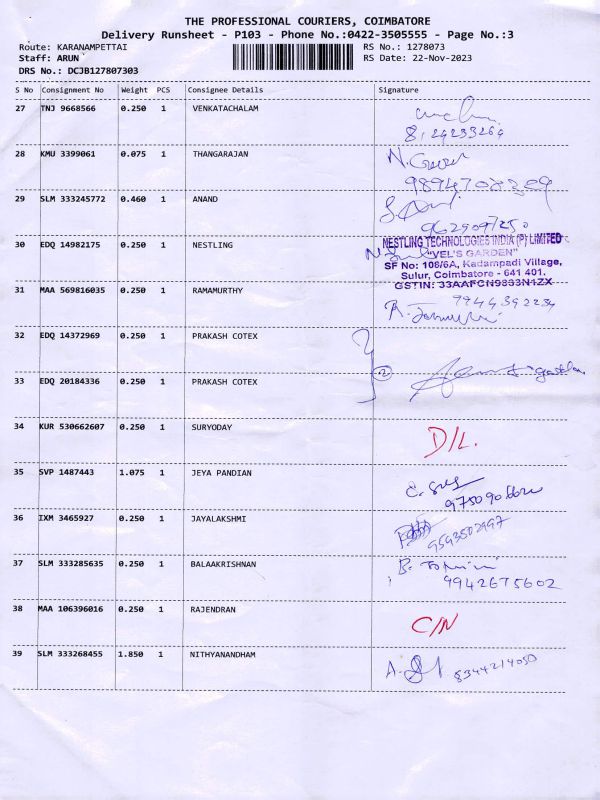 THE PROFESSIONAL COURIERS, COIMBATORE
Delivery Runsheet - P103 - Phone No.:0422-3505555 - Page No.:3
Route: KARANAMPETTAI RS No.: 1278073
Staff: ARUN RS Date: 22-Nov-2023
DRS No.: DCJB127807303
S No Consignment No Weight PCS Consignee Details Signature
27 TNJ 9668566 0.250 1 VENKATACHALAM
28 KMU 3399061 0.075 1 THANGARAJAN
29 SLM 333245772 0.460 1 ANAND
30 EDQ 14982175 0.250 1 NESTLING
NESTLING TECHNOLOGIES INDIA (P) LIMITED
"VEL'S GARDEN"
SF No: 108/6A, Kadampadi Village,
Sulur, Coimbatore - 641 401.
GSTIN: 33AAFCN9833N1ZX
31 MAA 569816035 0.250 1 RAMAMURTHY
32 EDQ 14372969 0.250 1 PRAKASH COTEX
33 EDQ 20184336 0.250 1 PRAKASH COTEX
2
34 KUR 530662607 0.250 1 SURYODAY D/L.
35 SVP 1487443 1.075 1 JEYA PANDIAN
36 IXM 3465927 0.250 1 JAYALAKSHMI
9593502997
37 SLM 333285635 0.250 1 BALAAKRISHNAN
9942675602
38 MAA 106396016 0.250 1 RAJENDRAN C/N
39 SLM 333268455 1.850 1 NITHYANANDHAM
8344214050